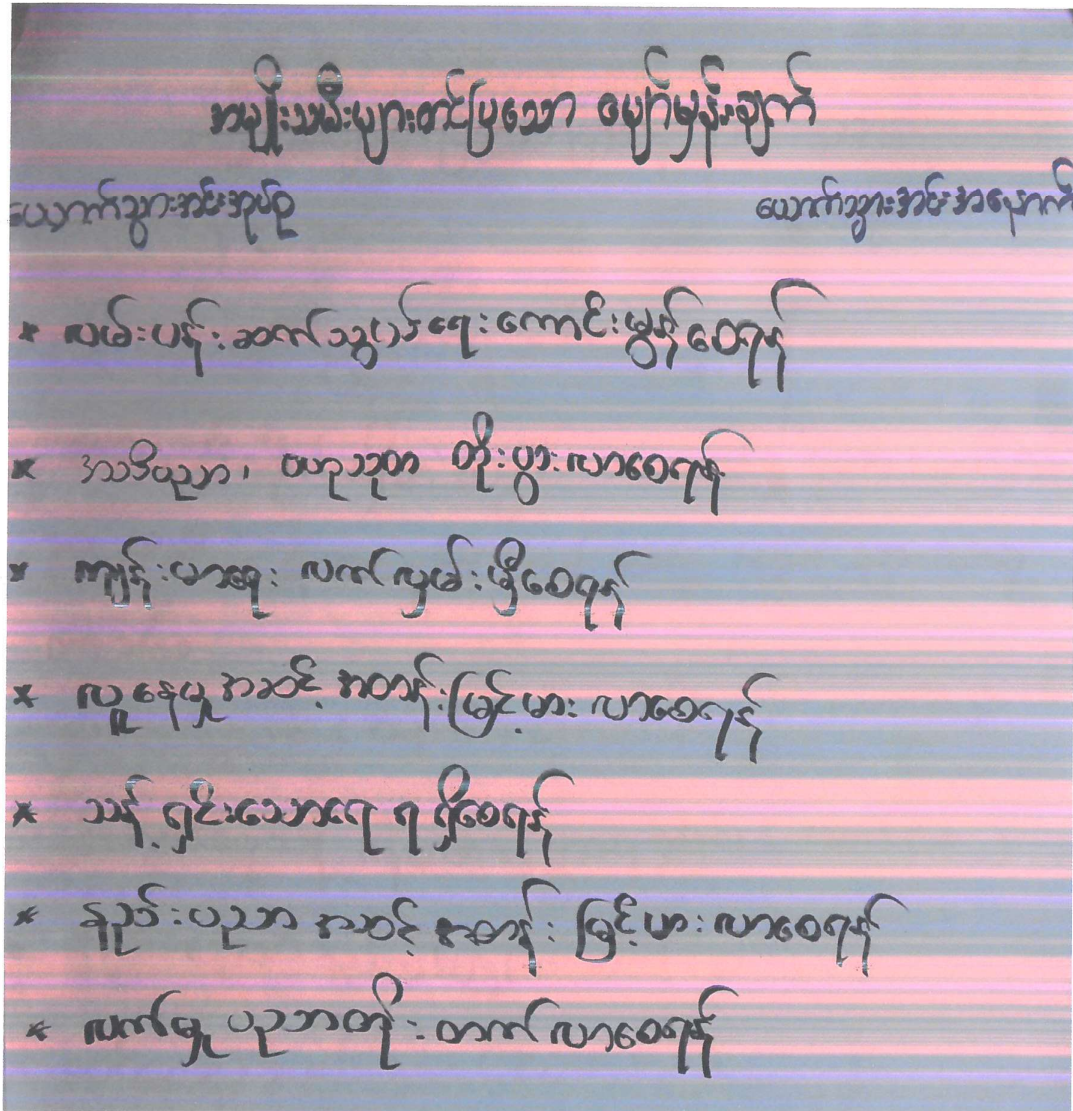 အမျိုးသမီးများတင်ပြသော မျှော်မှန်းချက်
ယောက်သွားအင်းအုပ်စု ယောက်သွားအင်းအနောက်
* လမ်းပန်းဆက်သွယ်ရေးကောင်းမွန်စေရန်
* အသိပညာ၊ ဗဟုသုတ တိုးပွားလာစေရန်
* ကျန်းမာရေး လက်လှမ်းမှီစေရန်
* လူနေမှုအဆင့်အတန်းမြင့်မားလာစေရန်
* သန့်ရှင်းသောရေရရှိစေရန်
* နည်းပညာအဆင့်အတန်းမြင့်မားလာစေရန်
* လက်မှုပညာတိုးတက်လာစေရန်